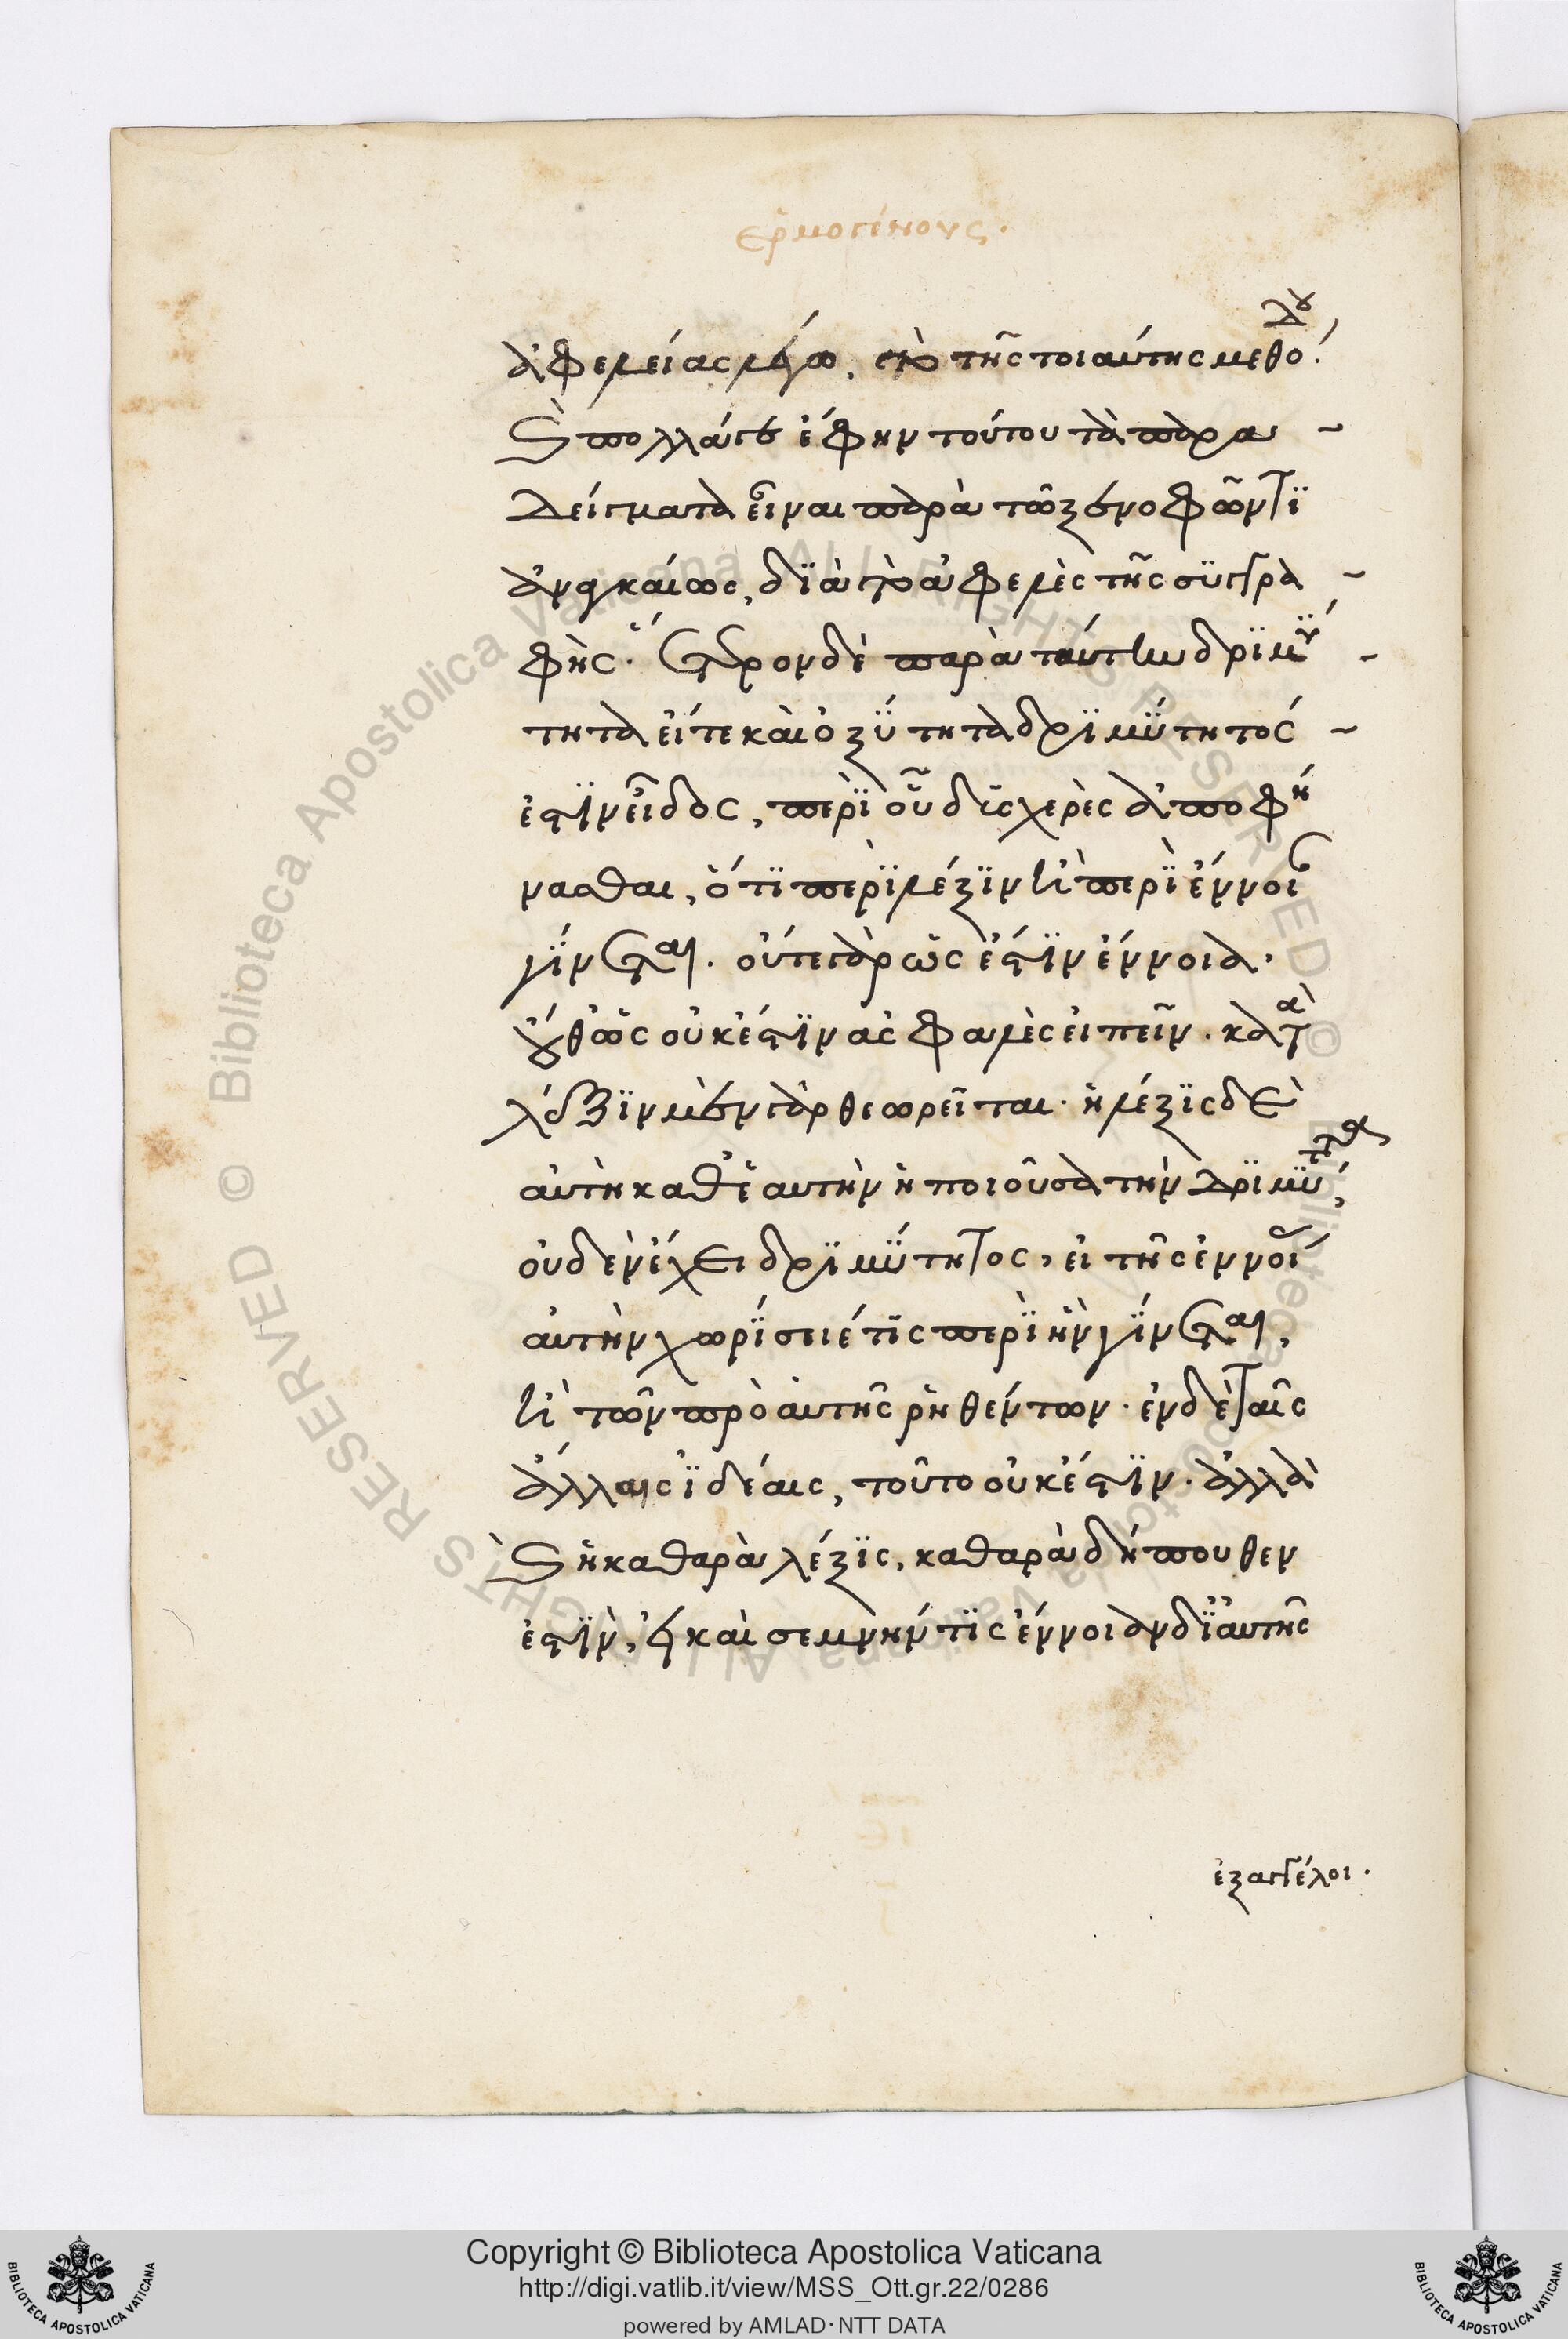 ἑρμογένους.
ἀφελείας λέγω, ἐκ τῆς τοιαύτης μεθόδου
καὶ πολλά γε ἔφην τούτου τὰ παρα
δείγματα εἶναι παρὰ τῶ ξενοφῶντϊ
ἀναγκαίως, δϊὰ τὸ ἀφελὲς τῆς συγγρα
φῆς. ἕτερον δὲ παρὰ ταύτην δρϊμύ
τητα εἴτε καὶ ὀξύτητα δρϊμύτητός
ἐστϊν εἶδος, περὶ οὗ δυσχερὲς ἀποφή
νασθαι, ὅτϊ περὶ λέξϊν ἢ περὶ ἔννοιαν
γίνεται. οὔτε γάρ πως ἐστϊν ἔννοια.
οὔθ' ὡς οὐκ ἔστϊν ἀσφαλὲς εἰπεῖν. κατὰ
λέξϊν μὲν γὰρ θεωρεῖται. ἡ λέξϊς δὲ
αὐτὴ καθ' ἑαυτὴν ἡ ποιοῦσα τὴν δρϊμύτητα,
οὐδὲν ἔχει δρϊμύτητος, εἰ τῆς ἐννοίας
αὐτὴν χωρίσειέ τϊς περὶ ἣν γίνεται,
ἢ τῶν πρὸ αὐτῆς ῥηθέντων. ἐν δὲ ταῖς
ἄλλαις ἰδέαις, τοῦτο οὐκ ἔστϊν. ἀλλὰ
καὶ ἡ καθαρὰ λέξϊς, καθαρὰ δήπουθεν
ἐστϊν, κἂν καὶ σεμνήν τϊς ἔννοιαν δϊ' αὐτῆς
ἐξαγγέλοι.
Copyright © Biblioteca Apostolica Vaticana
http://digi.vatlib.it/view/MSS_Ott.gr.22/0286
powered by AMLAD·NTT DATA